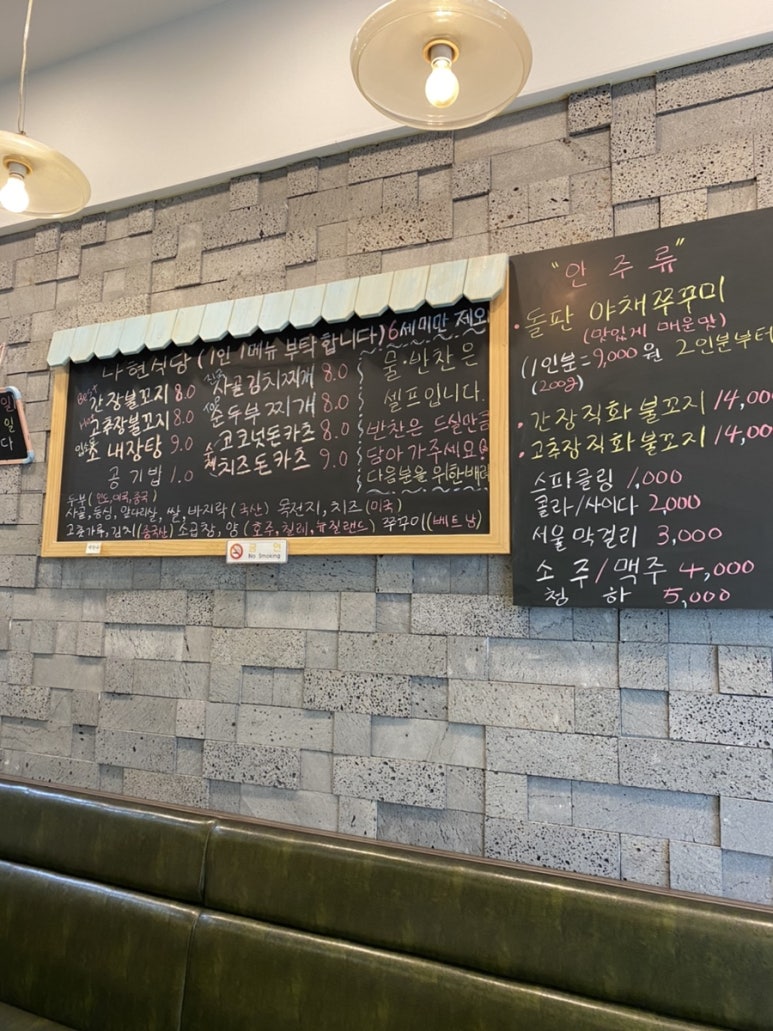 나현식당 (1인 1메뉴 부탁합니다) 6세미만 제외
간장불꼬지 8.0 사골김치찌개 8.0
고추장불꼬지 8.0 순두부찌개 8.0
내장탕 9.0 코코넛돈카츠 8.0
공기밥 1.0 치즈돈카츠 9.0
물·반찬은
셀프입니다.
반찬은 드실만큼
담아가주세요
다음분을 위한배려
두부(인도,미국,중국)
사골,등심,앞다리살,쌀,바지락(국산) 목전지,치즈(미국)
고춧가루,김치(중국산) 소곱창,양(호주,칠레,뉴질랜드) 쭈꾸미(베트남)
금연
No Smoking
"안주류"
·돌판 야채쭈꾸미
(맛있게 매운맛)
(1인분=9,000원 2인분부터
(200g)
·간장직화불꼬지 14,000
·고추장직화불꼬지 14,00
스파클링 1,000
콜라/사이다 2,000
서울막걸리 3,000
소주/맥주 4,000
청하 5,000
일
다